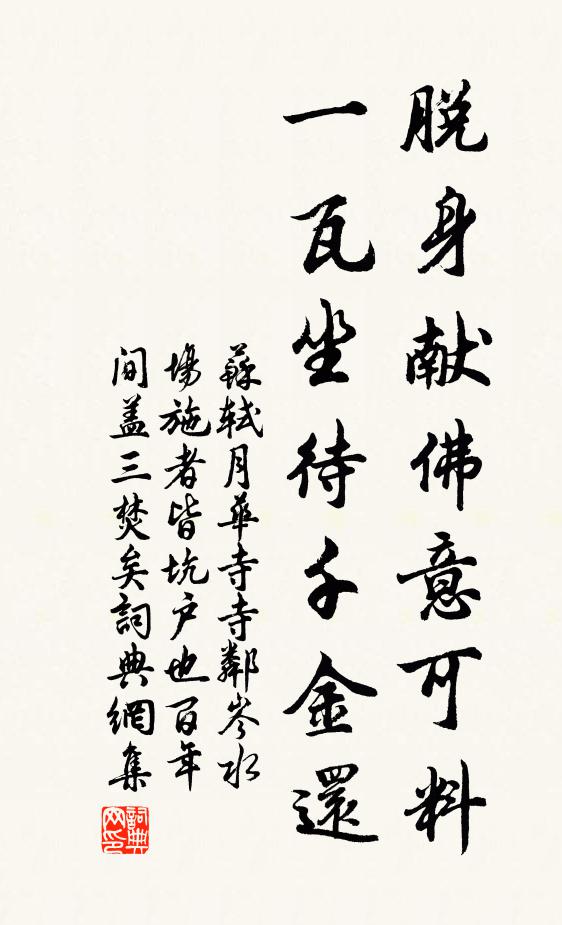 脱身献佛意可料
一瓦坐待千金還
蘇軾月華寺寺鄰岑水
場施者皆坑户也百年
间蓋三焚矣詞典網集
詞典网印